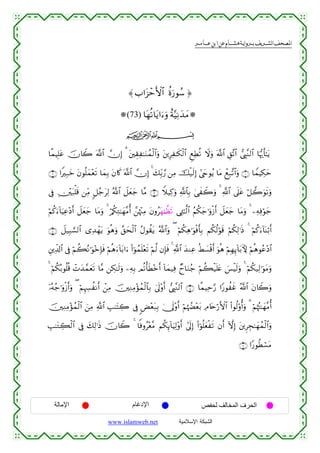 المصحف الشريف برواية هشام عن ابن عامر
﴿ سُورَةُ ٱلْأَحْزَابِ ﴾
*مَدَنِيَّةٌ وَءَايَاتُهَا (73)*
بِسْمِ ٱللَّهِ ٱلرَّحْمَٰنِ ٱلرَّحِيمِ
يَٰٓأَيُّهَا ٱلنَّبِىُّ ٱتَّقِ ٱللَّهَ وَلَا تُطِعِ ٱلْكَٰفِرِينَ وَٱلْمُنَٰفِقِينَ ۗ إِنَّ ٱللَّهَ كَانَ عَلِيمًا
حَكِيمًا وَٱتَّبِعْ مَا يُوحَىٰٓ إِلَيْكَ مِن رَّبِّكَ ۚ إِنَّ ٱللَّهَ كَانَ بِمَا تَعْمَلُونَ خَبِيرًا
وَتَوَكَّلْ عَلَى ٱللَّهِ ۚ وَكَفَىٰ بِٱللَّهِ وَكِيلًا مَّا جَعَلَ ٱللَّهُ لِرَجُلٍ مِّن قَلْبَيْنِ فِى
جَوْفِهِۦ ۚ وَمَا جَعَلَ أَزْوَٰجَكُمُ ٱلَّٰٓـِٔى تَظَّٰهَرُونَ مِنْهُنَّ أُمَّهَٰتِكُمْ ۚ وَمَا جَعَلَ أَدْعِيَآءَكُمْ
أَبْنَآءَكُمْ ۚ ذَٰلِكُمْ قَوْلُكُم بِأَفْوَٰهِكُمْ ۖ وَٱللَّهُ يَقُولُ ٱلْحَقَّ وَهُوَ يَهْدِى ٱلسَّبِيلَ
ٱدْعُوهُمْ لِـَٔابَآئِهِمْ هُوَ أَقْسَطُ عِندَ ٱللَّهِ ۚ فَإِن لَّمْ تَعْلَمُوٓا۟ ءَابَآءَهُمْ فَإِخْوَٰنُكُمْ فِى ٱلدِّينِ
وَمَوَٰلِيكُمْ ۚ وَلَيْسَ عَلَيْكُمْ جُنَاحٌ فِيمَآ أَخْطَأْتُم بِهِۦ وَلَٰكِن مَّا تَعَمَّدَتْ قُلُوبُكُمْ ۚ
وَكَانَ ٱللَّهُ غَفُورًا رَّحِيمًا ٱلنَّبِىُّ أَوْلَىٰ بِٱلْمُؤْمِنِينَ مِنْ أَنفُسِهِمْ ۖ وَأَزْوَٰجُهُۥٓ
أُمَّهَٰتُهُمْ ۗ وَأُو۟لُوا۟ ٱلْأَرْحَامِ بَعْضُهُمْ أَوْلَىٰ بِبَعْضٍ فِى كِتَٰبِ ٱللَّهِ مِنَ ٱلْمُؤْمِنِينَ
وَٱلْمُهَٰجِرِينَ إِلَّآ أَن تَفْعَلُوٓا۟ إِلَىٰٓ أَوْلِيَآئِكُم مَّعْرُوفًا ۚ كَانَ ذَٰلِكَ فِى ٱلْكِتَٰبِ
مَسْطُورًا
الحرف المخالف لحفص الإدغام الإمالة
الشبكة الإسلامية www.islamweb.net